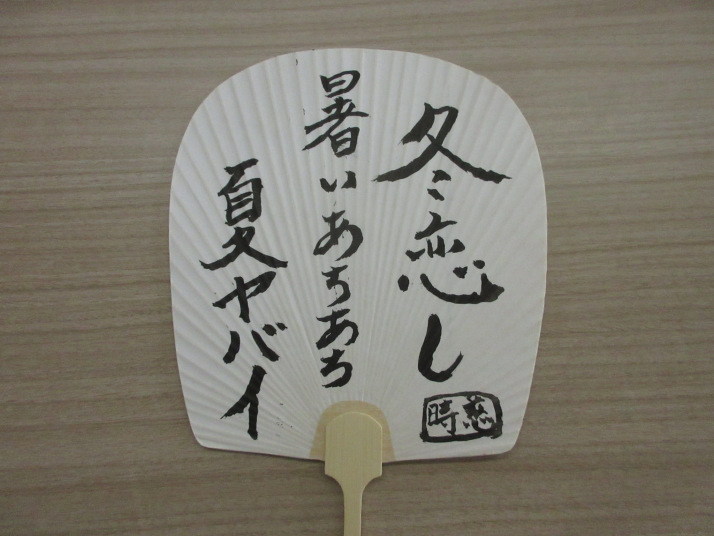 冬恋し
暑いあちあち
夏ヤバイ
慈時